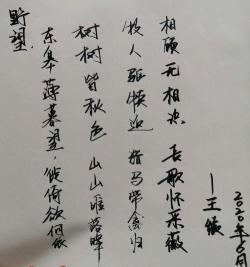 野望.
东皋薄暮望,徙倚欲何依
树树皆秋色 山山唯落晖
牧人驱犊返 猎马带禽归
相顾无相识 长歌怀采薇
—王绩
2020年6月